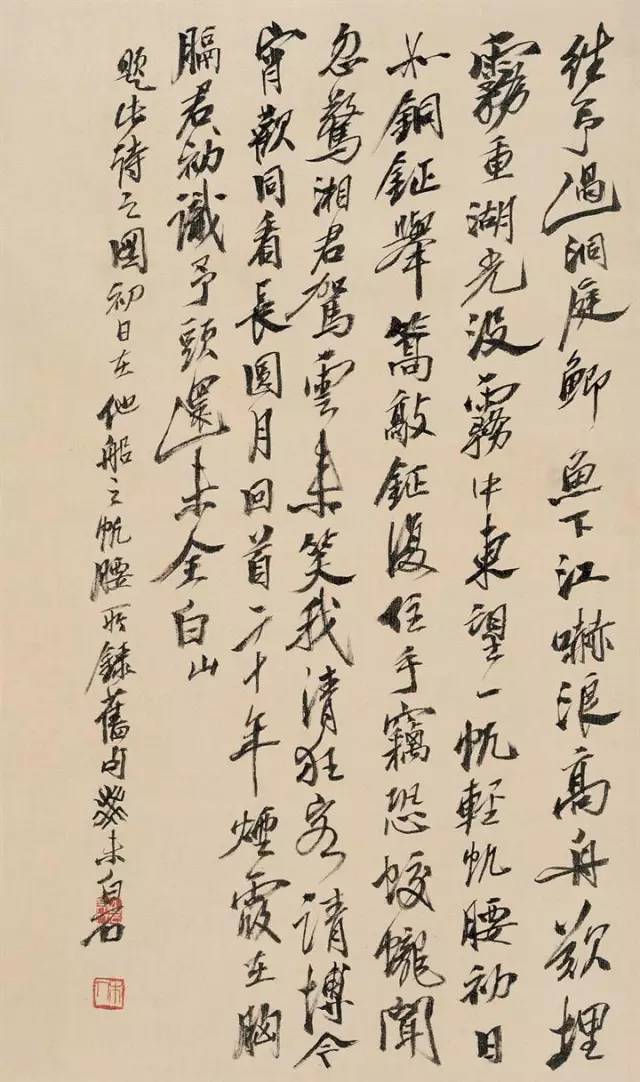 往予過洞庭鯽魚下江嚇浪高舟欲埋
霧重湖光没霧中東望一帆輕帆腰初日
如銅鉦舉篙敲鉦復住手竊恐蛟龍聞
忽驚湘君駕雲来笑我清狂客請博今
宵歡同看長圓月回首二十年煙霞在胸
膈君初識予頭還未全白山
題此詩之圖初日在他船之帆腰所録舊句癸未白石